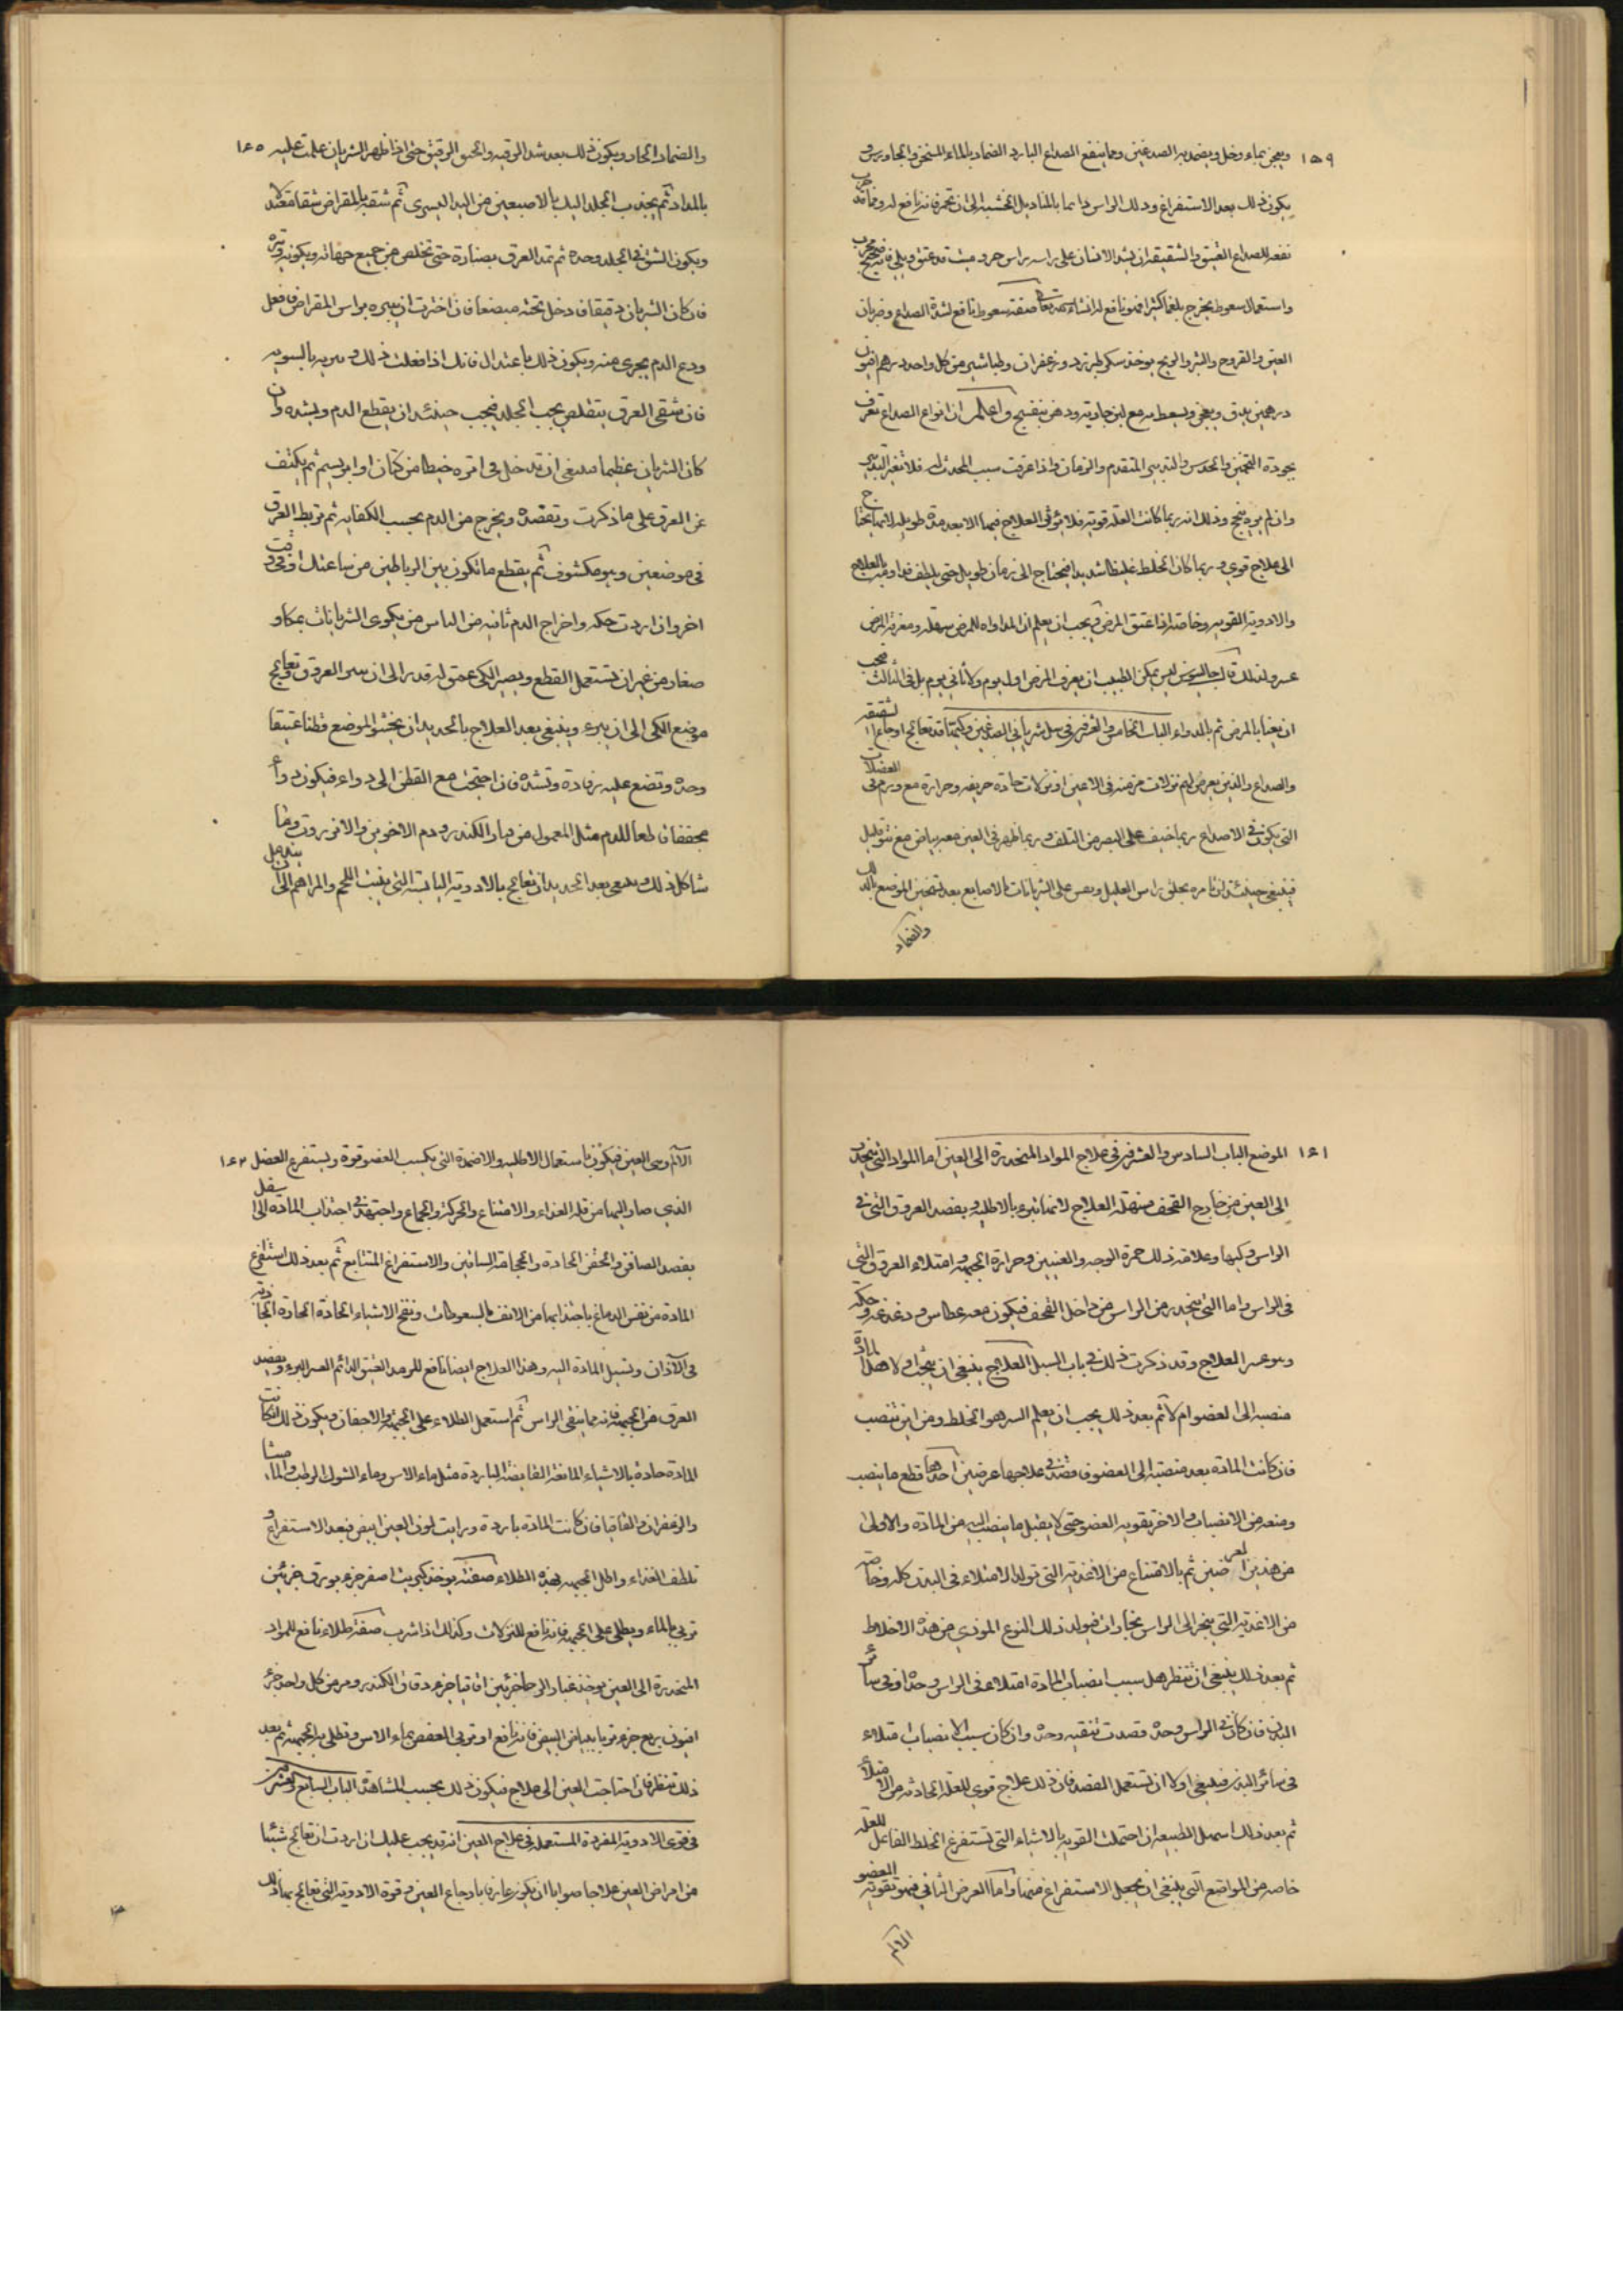 ١٥٩
ويعجن بماء وخل ويضمد به الصدغين ومما ينفع الصداع البارد الضماد بالماء المسخن والجاورس و
يكون ذلك بعد الاستفراغ ودلك الراس دايما بالمناديل الخشنة الى ان تحمر فانه نافع له ومما قد جرب
نفعه للصداع العتيق والشقيقة ان يشد الانسان على راسه راس جرد ميت قد عتق وبلى فانه صحيح مجرب
واستعمال سعوط يخرج بلغما كثيرا فهو نافع له انشاء الله تعالى صفة سعوط نافع لشدة الصداع وضربان
العين والقروح والبثر والريح يوخذ سكر طبرزد وزعفران وطباشير من كل واحد درهم افيون
درهمين يدق ويعجن ويسعط به مع لبن جارية ودهن بنفسج واعلم ان انواع الصداع تعرف
بجودة التخمين والحدس والتدبير المتقدم والزمان واذا عرفت سبب المحدث له فلا تغير التدبير
وان لم يره ينجح وذلك انه ربما كانت العلة قوية فلا يوثر العلاج فيها الا بعد مدة طويلة لانها تحتاج
الى علاج قوي وربما كان الخلط غليظا شديدا فيحتاج الى زمان طويل حتى يلطف فداومه بالعلاج
والادوية القوية وخاصة اذا عتق المرض ويجب ان يعلم ان المداواه للمرض سهلة ومعرفة المرض
عسر ولذلك قال جالينوس ليس يمكن الطبيب ان يعرف المرض اول يوم ولا ثاني يوم بل في الثالث فيجب
ان يعنا بالمرض ثم بالدواء الباب الخامس والعشرين في سل شرياني الصدغين وكيهما قد تعالج اوجاع الشقيقة
والصداع والذين يعرض لهم نزلات مزمنة في الاعين او نزلات حادة حريفه وحرارة مع ورم في العضلات
التي يكون في الاصداغ ربما خيف على البصر من التلف وربما ظهر في العين معه بياض مع نتو قليل
فينبغي حينئذ ان تامره بحلق راس العليل ويجس على الشريانات بالاصابع بعد تسخين الموضع بالدلك
والضماد
والضماد الحار ويكون ذلك بعد شد الرقبه والخنق الرقيق حتى اذا ظهر الشريان علمت عليه
بالمداد ثم يجذب الجلد اليك بالاصبعين من اليد اليسرى ثم شقه بالمقراض شقا معتدلا
ويكون الشق في الجلد وحده ثم تمد العرق بصنارة حتى تخلص من جميع جهاته ويكون وتره
فان كان الشريان دقيقا فدخل تحته مبضعا فان اخترت ان تبتره براس المقراض فافعل
ودع الدم يجري منه ويكون ذلك باعتدال فانك اذا فعلت ذلك و بالسويه
فان شفتي العرق يتقلص يجب الجلد فيجب حينئذ ان يقطع الدم ويشده وان
كان الشريان عظيما فينبغي ان تدخل في ابرة خيطا من كتان او ابريسم ثم يكشف
عن العرق على ما ذكرت وتفصده ويخرج من الدم بحسب الكفاية ثم تربط العرق
في موضعين وهو مكشوف ثم يقطع ما تكون بين الرباطين من ساعتك او في وقت
اخر وان اردت حكه واخراج الدم ثانيه من الناس من يكوي الشريانات بمكاو
صغار من غير ان تستعمل القطع ويصير الكي عمق له قدر الى ان العروق وتعالج
موضع الكي الى ان يبرء وينبغي بعد العلاج بالحديد ان يحشو الموضع قطنا عتيقا
وحده وتضع عليه رفادة وتشده فان احتجت مع القطن الى دواء فيكون دواء
مجففا قاطعا للدم مثل المعمول من دقاق الكندر ودم الاخوين والانزروت وما
شاكل ذلك وينبغي بعد الحديد ان تعالج بالادوية اليابسة التي ينبت اللحم والمراهم الى ان يندمل
١٦١
الموضع الباب السادس والعشرين في علاج المواد المنحدرة الى العين اما المواد التي ينحدر
الى العين من خارج القحف فسهلة العلاج لانها تبرء بالاطلية وبفصد العروق التي في
الراس وكيها وعلامة ذلك حمرة الوجه والعينين وحرارة الجبهة وامتلاء العروق التي
في الراس واما التي ينحدر من الراس من داخل القحف فيكون معه عطاس ودغدغه وحكه
وهو عسر العلاج وقد ذكرت ذلك في باب السبل العلاج ينبغي ان يبحث اولا هل المادة
منصبه الى العضو ام لا ثم بعد ذلك يجب ان يعلم السر هو الخلط ومن اين تنصب
فان كانت المادة بعد منصبة الى العضو فاقصد في علاجها غرضين احدهما قطع ما ينصب
ومنعه من الانصباب والاخر تقوية العضو حتى لا يقبل ما ينصب اليه من المادة والاولى
من هذين الغرضين ثم بالامتناع من الاغذية التي تولد الامتلاء في البدن كله وخاصة
من الاغذية التي يبخر الى الراس بخارات فيولد ذلك النوع الموذي من هذه الاخلاط
ثم بعد ذلك ينبغي ان تنظر هل سبب انصباب المادة امتلاء في الراس وحده او في سائر
البدن فان كان في الراس وحده قصدت تنقيه وحده وان كان سبب الانصباب امتلاء
في سائر البدن فينبغي اولا ان تستعمل الفصد فان ذلك علاج قوي للعلة الحادثه من الامتلاء
ثم بعد ذلك اسهل الطبيعة ان احتملت القوية بالاشياء التي تستفرغ الخلط الفاعل للعلة
خاصه من المواضع التي ينبغي ان يجعل الاستفراغ منها واما الغرض الثاني فهو تقوية العضو
الالم
١٦٢
الالم وهي العين فيكون باستعمال الاطليه والاضمدة التي يكسب العضو قوة ويستفرغ الفضل
الذي صار اليها من قلة الغذاء والامتناع والحركة والجماع واجتهد في اجتذاب المادة الى اسفل
بفصد الصافن والحقن الحادة والحجامة الساقين والاستفراغ المتتابع ثم بعد ذلك استفرغ
المادة من نفس الدماغ باجتذابها من الانف بالسعوطات ونفخ الاشياء الحادة الجاذبة
في الاذان وتسيل المادة اليه وهذا العلاج ايضا نافع للرمد العتيق الدائم العسر البرء وبفصد
العرق من الجبهة فانه مما ينقي الراس ثم استعمل الطلاء على الجبهة والاجفان ويكون ذلك ان كانت
المادة حادة بالاشياء المانعة القابضة الباردة مثل ماء الاس وماء الشوك الرطب والماميثا
والزعفران والقاقيا فان كانت المادة باردة ورايت لون العين ابيض فبعد الاستفراغ و
تلطف الغذاء واطل الجبهة بهذه الطلاء صفته يوخذ كبريت اصفر جزء بورق جزئين
تربي بالماء ويطلى على الجبهة فانه نافع للنزلات وكذلك اذا شرب صفة طلاء نافع للمواد
المنحدرة الى العين يوخذ غبار الرحا جزئين اقاقيا جزء دقاق الكندر ومر من كل واحد جزء
افيون ربع جزء تربا ببياض البيض فانه نافع او تربي العفص بماء الاس وتطلي به الجبهة ثم بعد
ذلك تنظر فان احتاجت العين الى علاج فيكون ذلك بحسب المشاهدة الباب السابع والعشرين
في قوى الادوية المفردة المستعملة في علاج العين انه يجب عليك ان اردت ان تعالج شيئا
من امراض العين علاجا صوابا ان يكون عارفا باوجاع العين وقوة الادوية التي تعالج بها ذلك